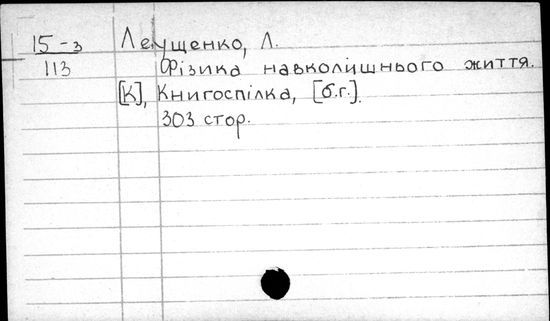 15-з Леущенко, Л.
113 Фізика навколишнього життя.
[К], Книгоспілка, [б.г.].
303 стор.